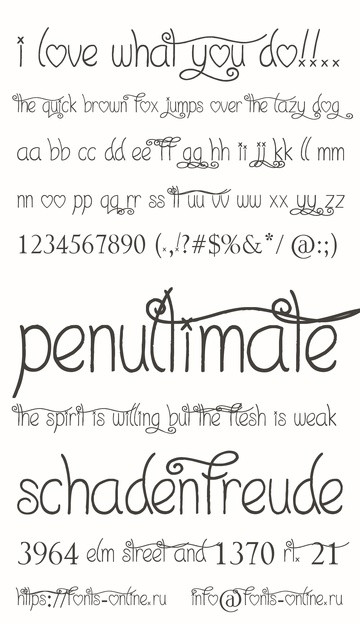 i love what you do!!....
the quick brown fox jumps over the lazy dog
aa bb cc dd ee ff gg hh ii jj kk ll mm
nn oo pp qq rr ss tt uu vv ww xx yy zz
1234567890 (.,!?#$%&*/ @:;)
penultimate
the spirit is willing but the flesh is weak
schadenfreude
3964 elm street and 1370 rt. 21
https://fonts-online.ru info@fonts-online.ru